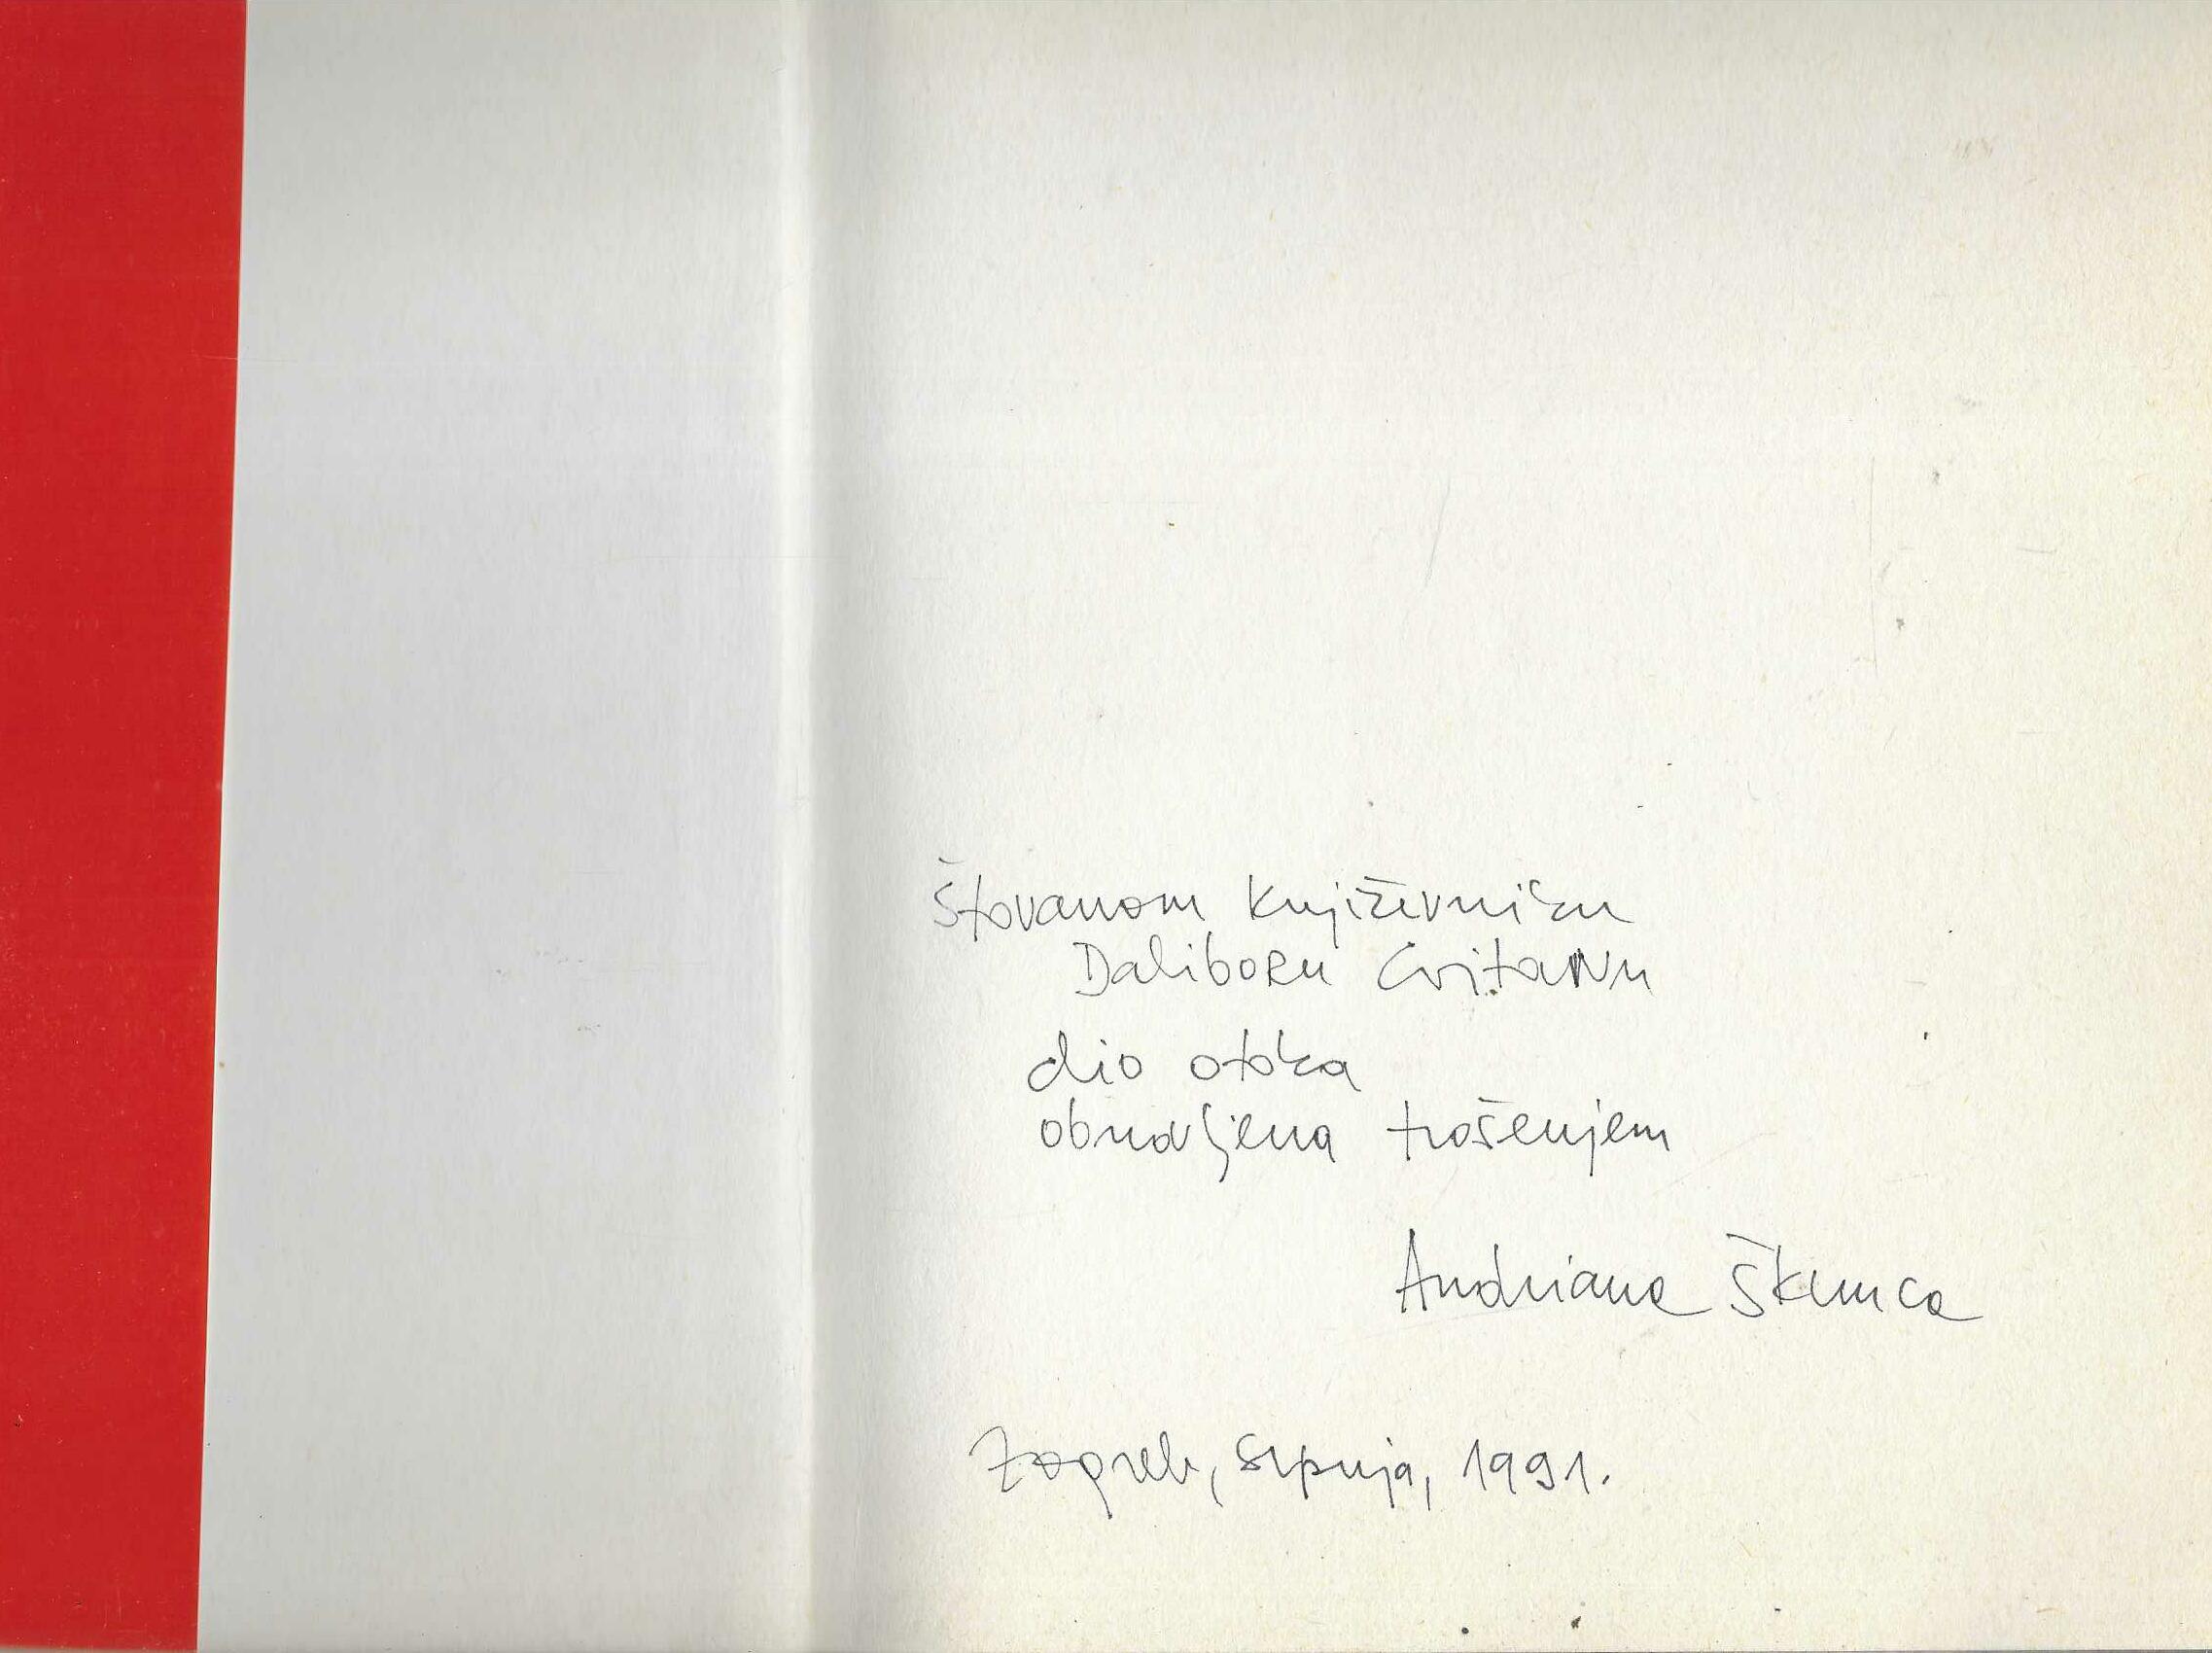 Štovanom književniku
Daliboru Cvitanu
dio otoka
obnovljena trošenjem
Andriana Škunca
Zagreb, srpnja, 1991.